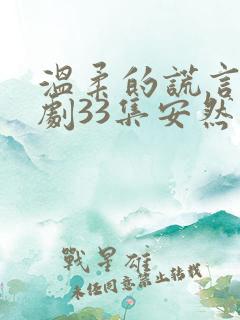 溫柔的謊言
劇33集安然
戰星雄
未任同意禁止转载